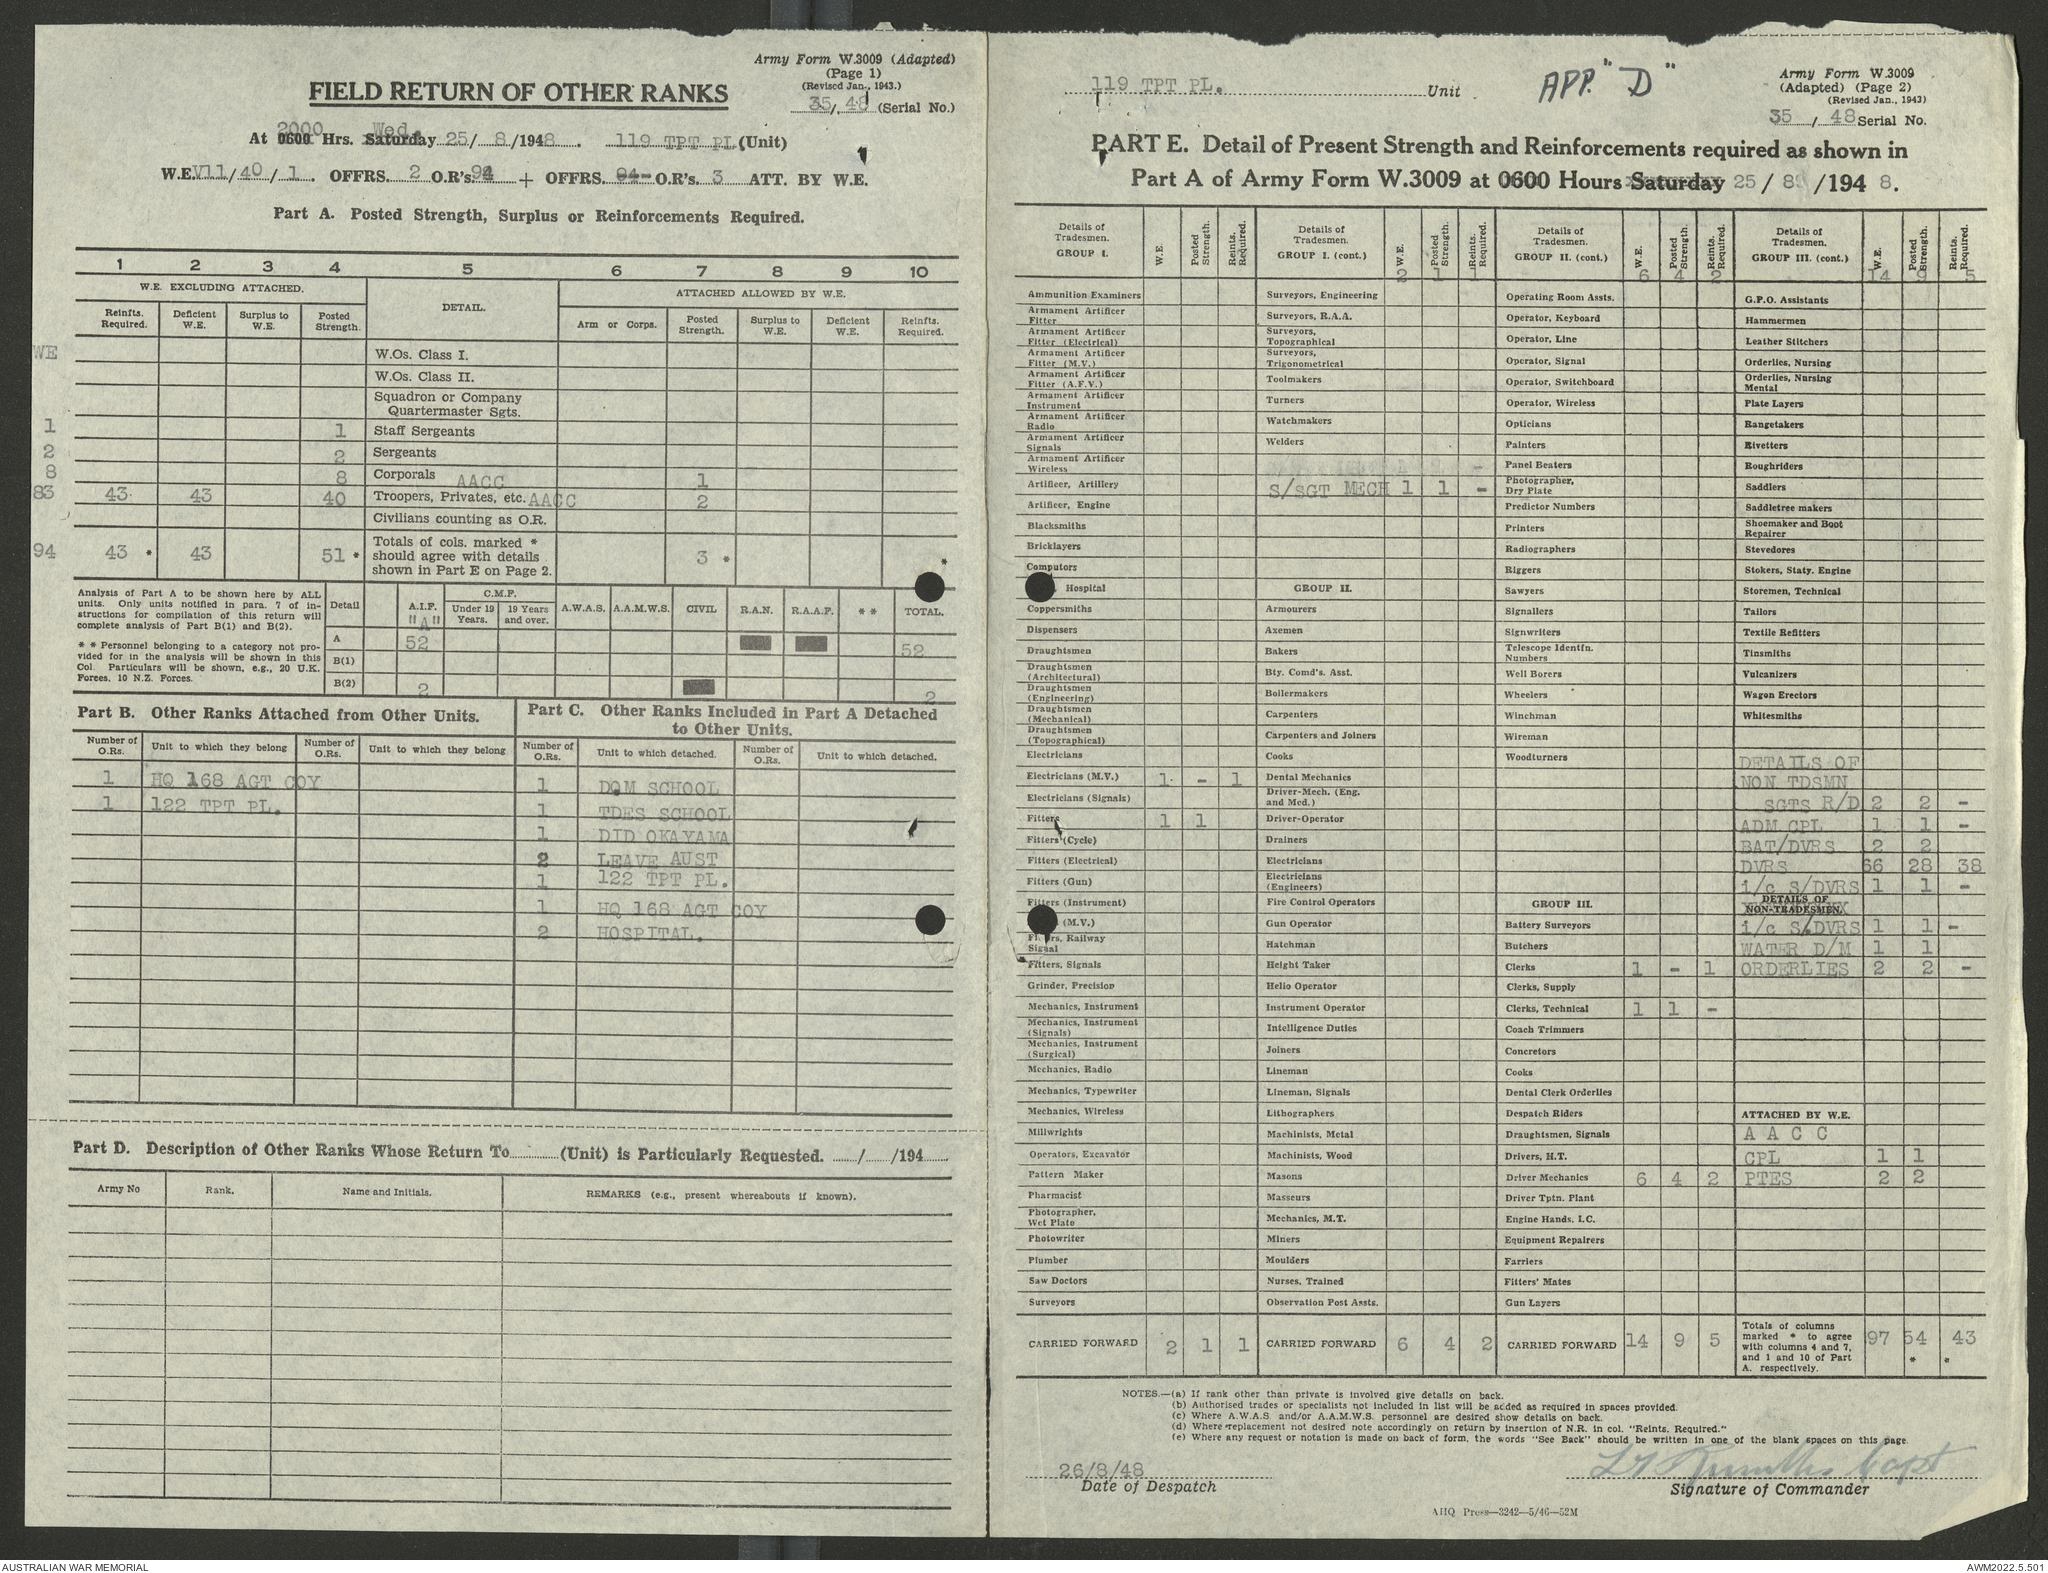 Army Form W.3009 (Adapted)
(Page 1)
(Revised Jan., 1943.)
FIELD RETURN OF OTHER RANKS
35/ 48 (Serial No.)
2000 Wed.
At 0600 Hrs. Saturday 25/ 8 /1948. 119 TPT PL (Unit)
W.E. V11/40/1. OFFRS. 2 O.R's. 94 + OFFRS. O.R's. 3 ATT. BY W.E.
Part A. Posted Strength, Surplus or Reinforcements Required.
1 2 3 4 5 6 7 8 9 10
W.E. EXCLUDING ATTACHED. DETAIL. ATTACHED ALLOWED BY W.E.
Reinfts. Required. Deficient W.E. Surplus to W.E. Posted Strength. Arm or Corps. Posted Strength. Surplus to W.E. Deficient W.E. Reinfts. Required.
WE W.Os. Class I.
W.Os. Class II.
Squadron or Company
Quartermaster Sgts.
1 1 Staff Sergeants
2 2 Sergeants
8 8 Corporals AACC 1
83 43 43 40 Troopers, Privates, etc. AACC 2
Civilians counting as O.R.
94 43 * 43 51 * Totals of cols. marked * should agree with details shown in Part E on Page 2. 3 * *
Analysis of Part A to be shown here by ALL
units. Only units notified in para. 7 of in-
structions for compilation of this return will
complete analysis of Part B(1) and B(2).
* * Personnel belonging to a category not pro-
vided for in the analysis will be shown in this
Col. Particulars will be shown, e.g., 20 U.K.
Forces, 10 N.Z. Forces.
Detail A.I.F. "A" C.M.F. Under 19 Years. 19 Years and over. A.W.A.S. A.A.M.W.S. CIVIL R.A.N. R.A.A.F. * * TOTAL.
A 52 52
B(1)
B(2) 2 2
Part B. Other Ranks Attached from Other Units.
Number of O.Rs. Unit to which they belong Number of O.Rs. Unit to which they belong
1 HQ 168 AGT COY
1 122 TPT PL.
Part C. Other Ranks Included in Part A Detached
to Other Units.
Number of O.Rs. Unit to which detached. Number of O.Rs. Unit to which detached.
1 DOM SCHOOL
1 TDES SCHOOL
1 DID OKAYAMA
2 LEAVE AUST
1 122 TPT PL.
1 HQ 168 AGT COY
2 HOSPITAL.
Part D. Description of Other Ranks Whose Return To (Unit) is Particularly Requested. / /194
Army No Rank. Name and Initials. REMARKS (e.g., present whereabouts if known).
119 TPT PL. Unit
APP. "D"
Army Form W.3009
(Adapted) (Page 2)
(Revised Jan., 1943)
35 / 48 Serial No.
PART E. Detail of Present Strength and Reinforcements required as shown in
Part A of Army Form W.3009 at 0600 Hours Saturday 25 / 8 /194 8.
Details of Tradesmen. GROUP I. W.E. Posted Strength. Reints. Required.
Ammunition Examiners
Armament Artificer Fitter
Armament Artificer Fitter (Electrical)
Armament Artificer Fitter (M.V.)
Armament Artificer Fitter (A.F.V.)
Armament Artificer Instrument
Armament Artificer Radio
Armament Artificer Signals
Armament Artificer Wireless
Artificer, Artillery
Artificer, Engine
Blacksmiths
Bricklayers
Computors
Hospital
Coppersmiths
Dispensers
Draughtsmen
Draughtsmen (Architectural)
Draughtsmen (Engineering)
Draughtsmen (Mechanical)
Draughtsmen (Topographical)
Electricians
Electricians (M.V.) 1 - 1
Electricians (Signals)
Fitters 1 1
Fitters (Cycle)
Fitters (Electrical)
Fitters (Gun)
Fitters (Instrument)
(M.V.)
Fitters, Railway Signal
Fitters, Signals
Grinder, Precision
Mechanics, Instrument
Mechanics, Instrument (Signals)
Mechanics, Instrument (Surgical)
Mechanics, Radio
Mechanics, Typewriter
Mechanics, Wireless
Millwrights
Operators, Excavator
Pattern Maker
Pharmacist
Photographer, Wet Plate
Photowriter
Plumber
Saw Doctors
Surveyors
CARRIED FORWARD 2 1 1
Details of Tradesmen. GROUP I. (cont.) W.E. Posted Strength. Reints. Required.
2 1 1
Surveyors, Engineering
Surveyors, R.A.A.
Surveyors, Topographical
Surveyors, Trigonometrical
Toolmakers
Turners
Watchmakers
Welders
S/SGT MECH 1 1 -
GROUP II.
Armourers
Axemen
Bakers
Bty. Comd's. Asst.
Boilermakers
Carpenters
Carpenters and Joiners
Cooks
Dental Mechanics
Driver-Mech. (Eng. and Med.)
Driver-Operator
Drainers
Electricians
Electricians (Engineers)
Fire Control Operators
Gun Operator
Hatchman
Height Taker
Helio Operator
Instrument Operator
Intelligence Duties
Joiners
Lineman
Lineman, Signals
Lithographers
Machinists, Metal
Machinists, Wood
Masons
Masseurs
Mechanics, M.T.
Miners
Moulders
Nurses, Trained
Observation Post Assts.
CARRIED FORWARD 6 4 2
Details of Tradesmen. GROUP II. (cont.) W.E. Posted Strength. Reints. Required.
6 4 2
Operating Room Assts.
Operator, Keyboard
Operator, Line
Operator, Signal
Operator, Switchboard
Operator, Wireless
Opticians
Painters
Panel Beaters
Photographer, Dry Plate
Predictor Numbers
Printers
Radiographers
Riggers
Sawyers
Signallers
Signwriters
Telescope Identfn. Numbers
Well Borers
Wheelers
Winchman
Wireman
Woodturners
GROUP III.
Battery Surveyors
Butchers
Clerks 1 - 1
Clerks, Supply
Clerks, Technical 1 1 -
Coach Trimmers
Concretors
Cooks
Dental Clerk Orderlies
Despatch Riders
Draughtsmen, Signals
Drivers, H.T.
Driver Mechanics 6 4 2
Driver Tptn. Plant
Engine Hands, I.C.
Equipment Repairers
Farriers
Fitters' Mates
Gun Layers
CARRIED FORWARD 14 9 5
Details of Tradesmen. GROUP III. (cont.) W.E. Posted Strength. Reints. Required.
14 9 5
G.P.O. Assistants
Hammermen
Leather Stitchers
Orderlies, Nursing
Orderlies, Nursing Mental
Plate Layers
Rangetakers
Rivetters
Roughriders
Saddlers
Saddletree makers
Shoemaker and Boot Repairer
Stevedores
Stokers, Staty. Engine
Storemen, Technical
Tailors
Textile Refitters
Tinsmiths
Vulcanizers
Wagon Erectors
Whitesmiths
DETAILS OF
NON TDSMN
SGTS R/D 2 2 -
ADM CPL 1 1 -
BAT/DVRS 2 2
DVRS 66 28 38
i/c S/DVRS 1 1 -
DETAILS OF
NON-TRADESMEN.
i/c S/DVRS 1 1 -
WATER D/M 1 1
ORDERLIES 2 2 -
ATTACHED BY W.E.
A A C C
CPL 1 1
PTES 2 2
Totals of columns marked * to agree with columns 4 and 7, and 1 and 10 of Part A. respectively. 97 54 * 43 *
NOTES.—(a) If rank other than private is involved give details on back.
(b) Authorised trades or specialists not included in list will be added as required in spaces provided.
(c) Where A.W.A.S. and/or A.A.M.W.S. personnel are desired show details on back.
(d) Where replacement not desired note accordingly on return by insertion of N.R. in col. "Reints. Required."
(e) Where any request or notation is made on back of form, the words "See Back" should be written in one of the blank spaces on this page.
26/8/48
Date of Despatch
Capt
Signature of Commander
AHQ Press—3242—5/46—52M
AUSTRALIAN WAR MEMORIAL
AWM2022.5.501